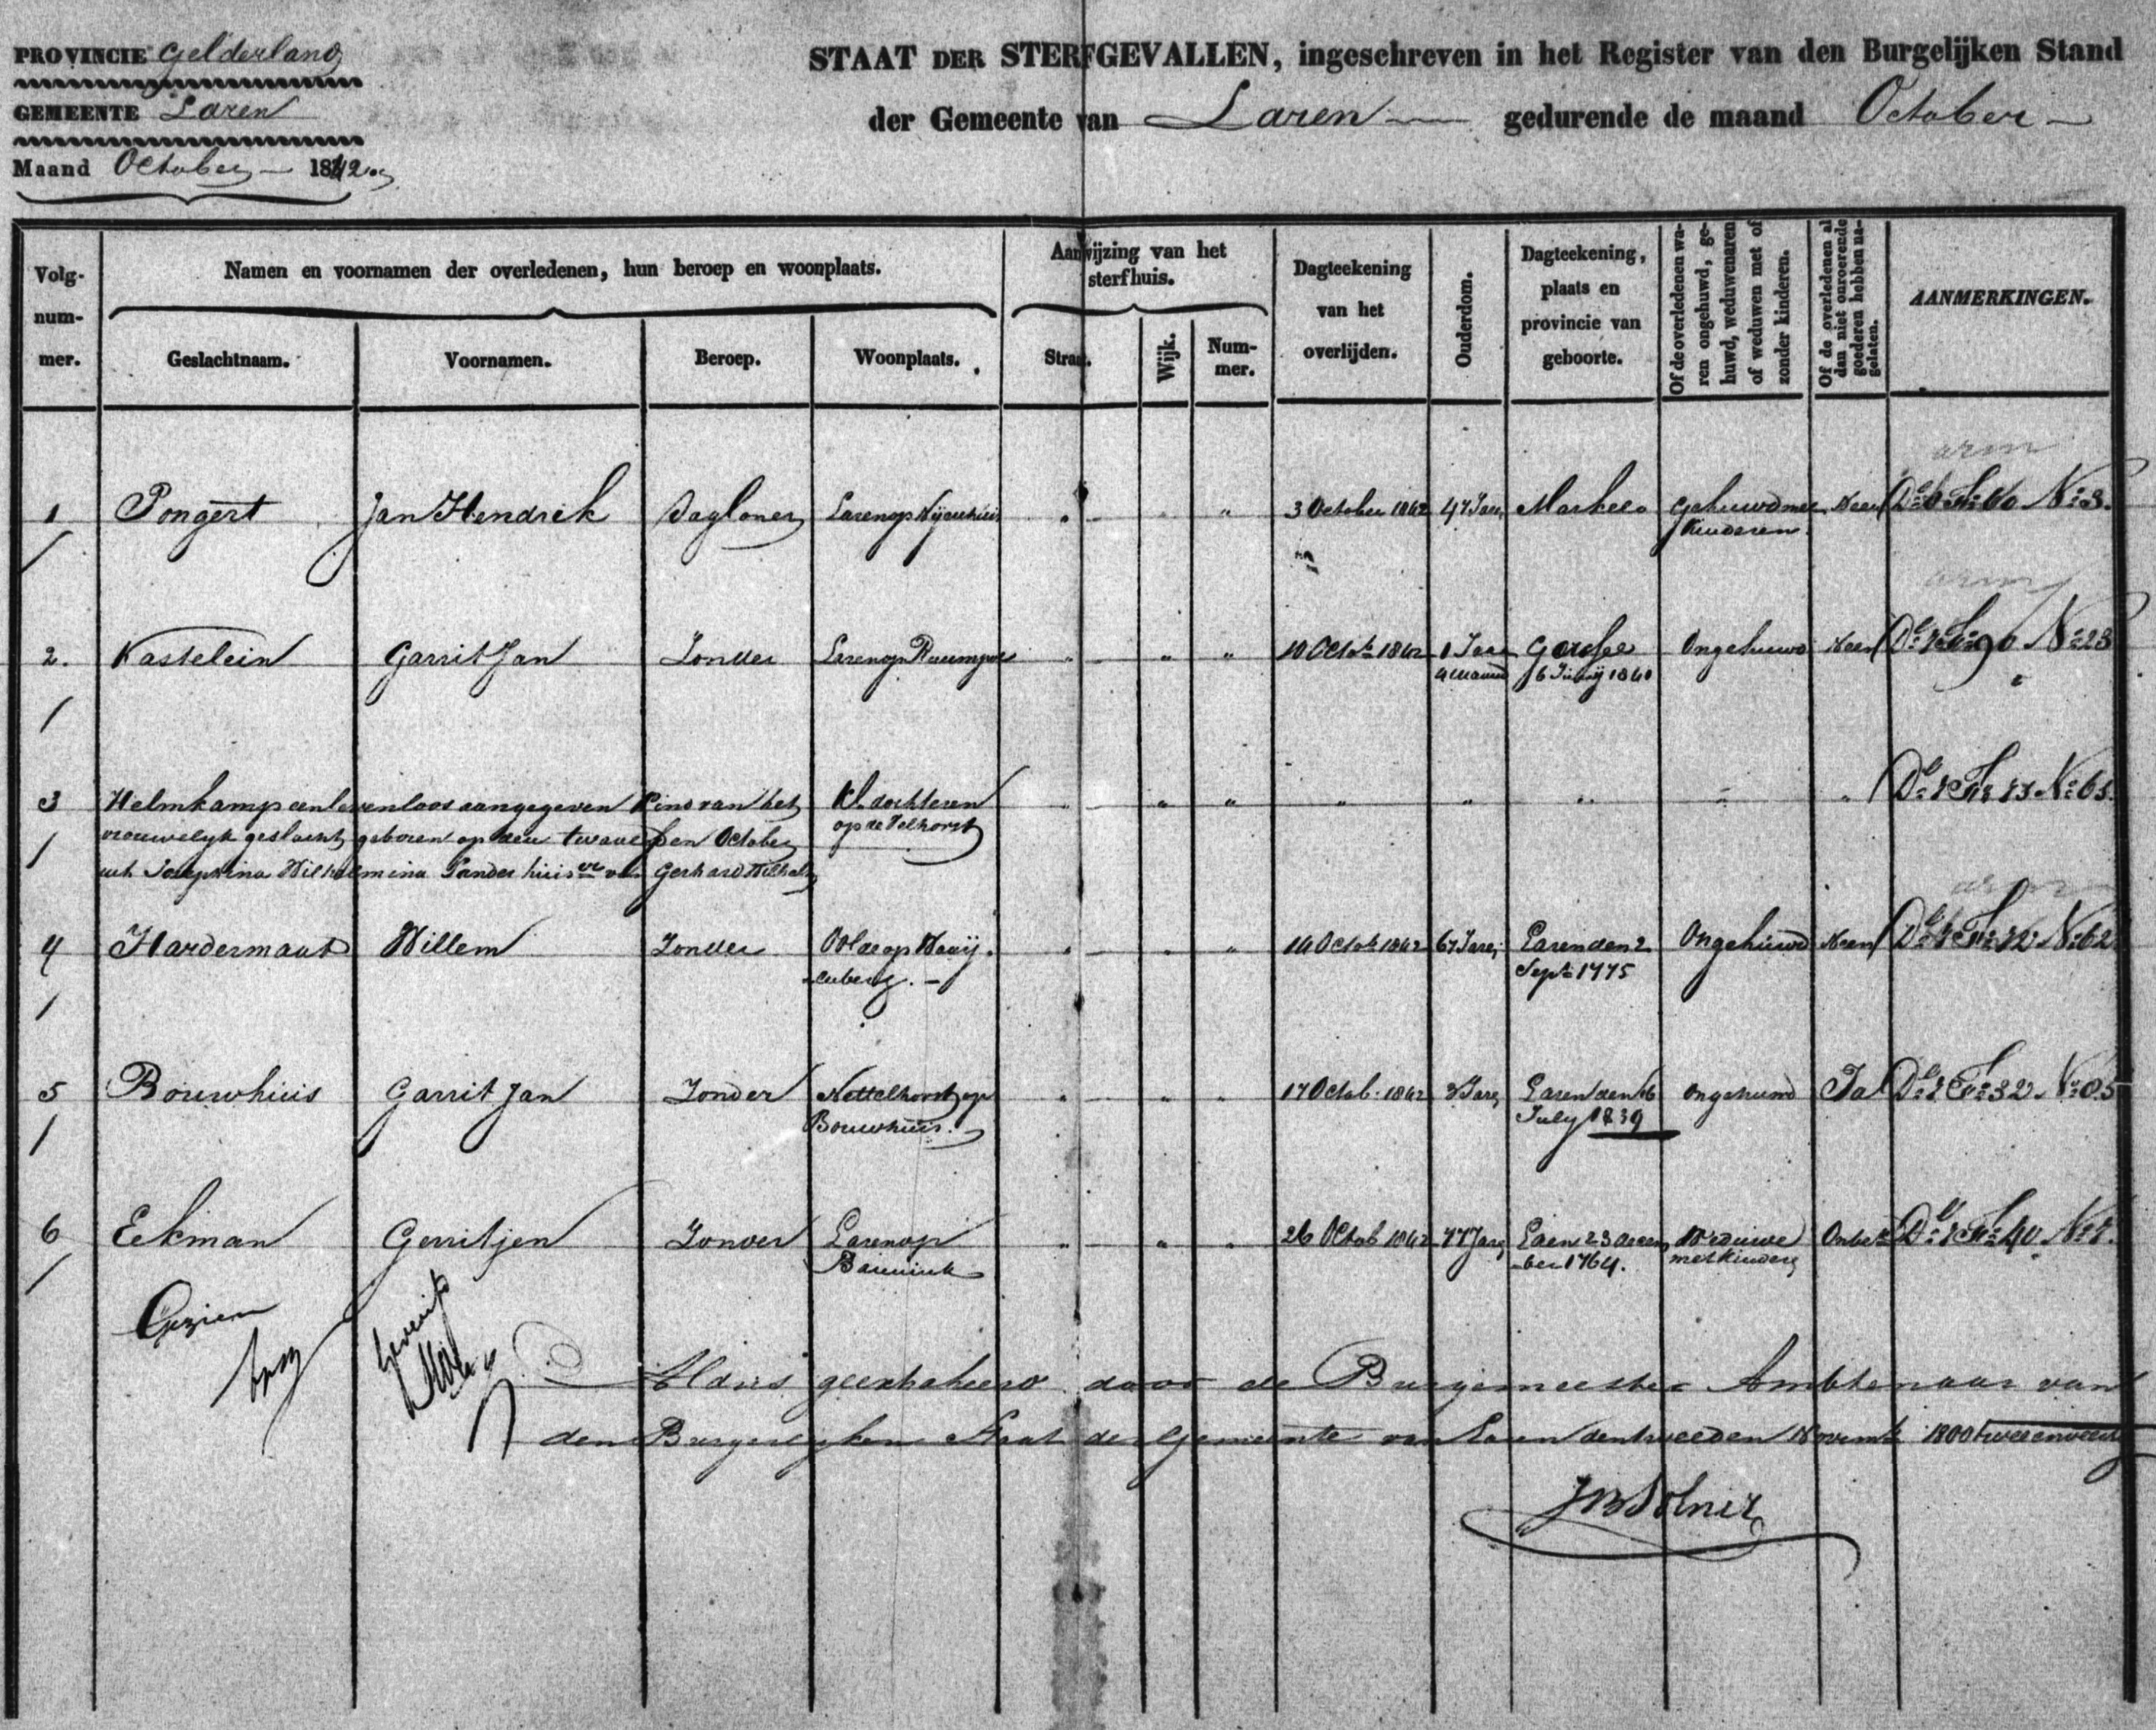 PROVINCIE Gelderland
GEMEENTE Laren
Maand October 1842
STAAT DER STERFGEVALLEN, ingeschreven in het Register van den Burgelijken Stand
der Gemeente van Laren gedurende de maand October
Volg-
num-
mer.
Namen en voornamen der overledenen, hun beroep en woonplaats.
Geslachtnaam. Voornamen. Beroep. Woonplaats.
Aanwijzing van het
sterfhuis.
Straat. Wijk. Num-
mer.
Dagteekening
van het
overlijden.
Ouderdom.
Dagteekening,
plaats en
provincie van
geboorte.
Of de overledenen wa-
ren ongehuwd, ge-
huwd, weduwenaren
of weduwen met of
zonder kinderen.
Of de overledenen al
dan niet onroerende
goederen hebben na-
gelaten.
AANMERKINGEN.
arm
1 Pongert Jan Hendrik Dagloner Laren op Nijenhuis " " 3 October 1842 47 Jare Markelo Gehuwd met Neen No 3.
Kinderen.
arm
2. Kastelein Garrit Jan Zonder Laren op " " " 10 Octob 1842 1 Jaar Gorssel Ongehuwd Neen No 23
9 maand 1841
3 Helmkamp een levenloos aangegeven Kind van het Kl. dochteren " " " " " " " " No 63
vrouwelyk geslacht geboren op den twaalfden October op de Velhorst
uit Josephina Wilhelmina Sander huisvr van Gerhard Wilhelm
arm
4 Hardermaat Willem Zonder Oolde op Waaij- " " " 14 Octob 1842 67 Jare Laren den 2 Ongehuwd Neen No 62
enberg. Sept 1775
5 Bouwhuis Garrit Jan Zonder Nettelhorst op " " " 17 Octob. 1842 3 Jare Laren den 16 Ongehuwd Ja No 85
Bouwhuis. July 1839
6 Eekman Gerritjen Zonder Laren op " " " 26 Octob 1842 77 Jare Laren 23 Decem Weduwe Onbek
Bannink -ber 1764. met Kinderen
Gezien
Aldus geextraheerd door de Burgemeester Ambtenaar van
den Burgerlyken Staat der Gemeente van Laren den tweeden Novemb 1800 tweeenveertig